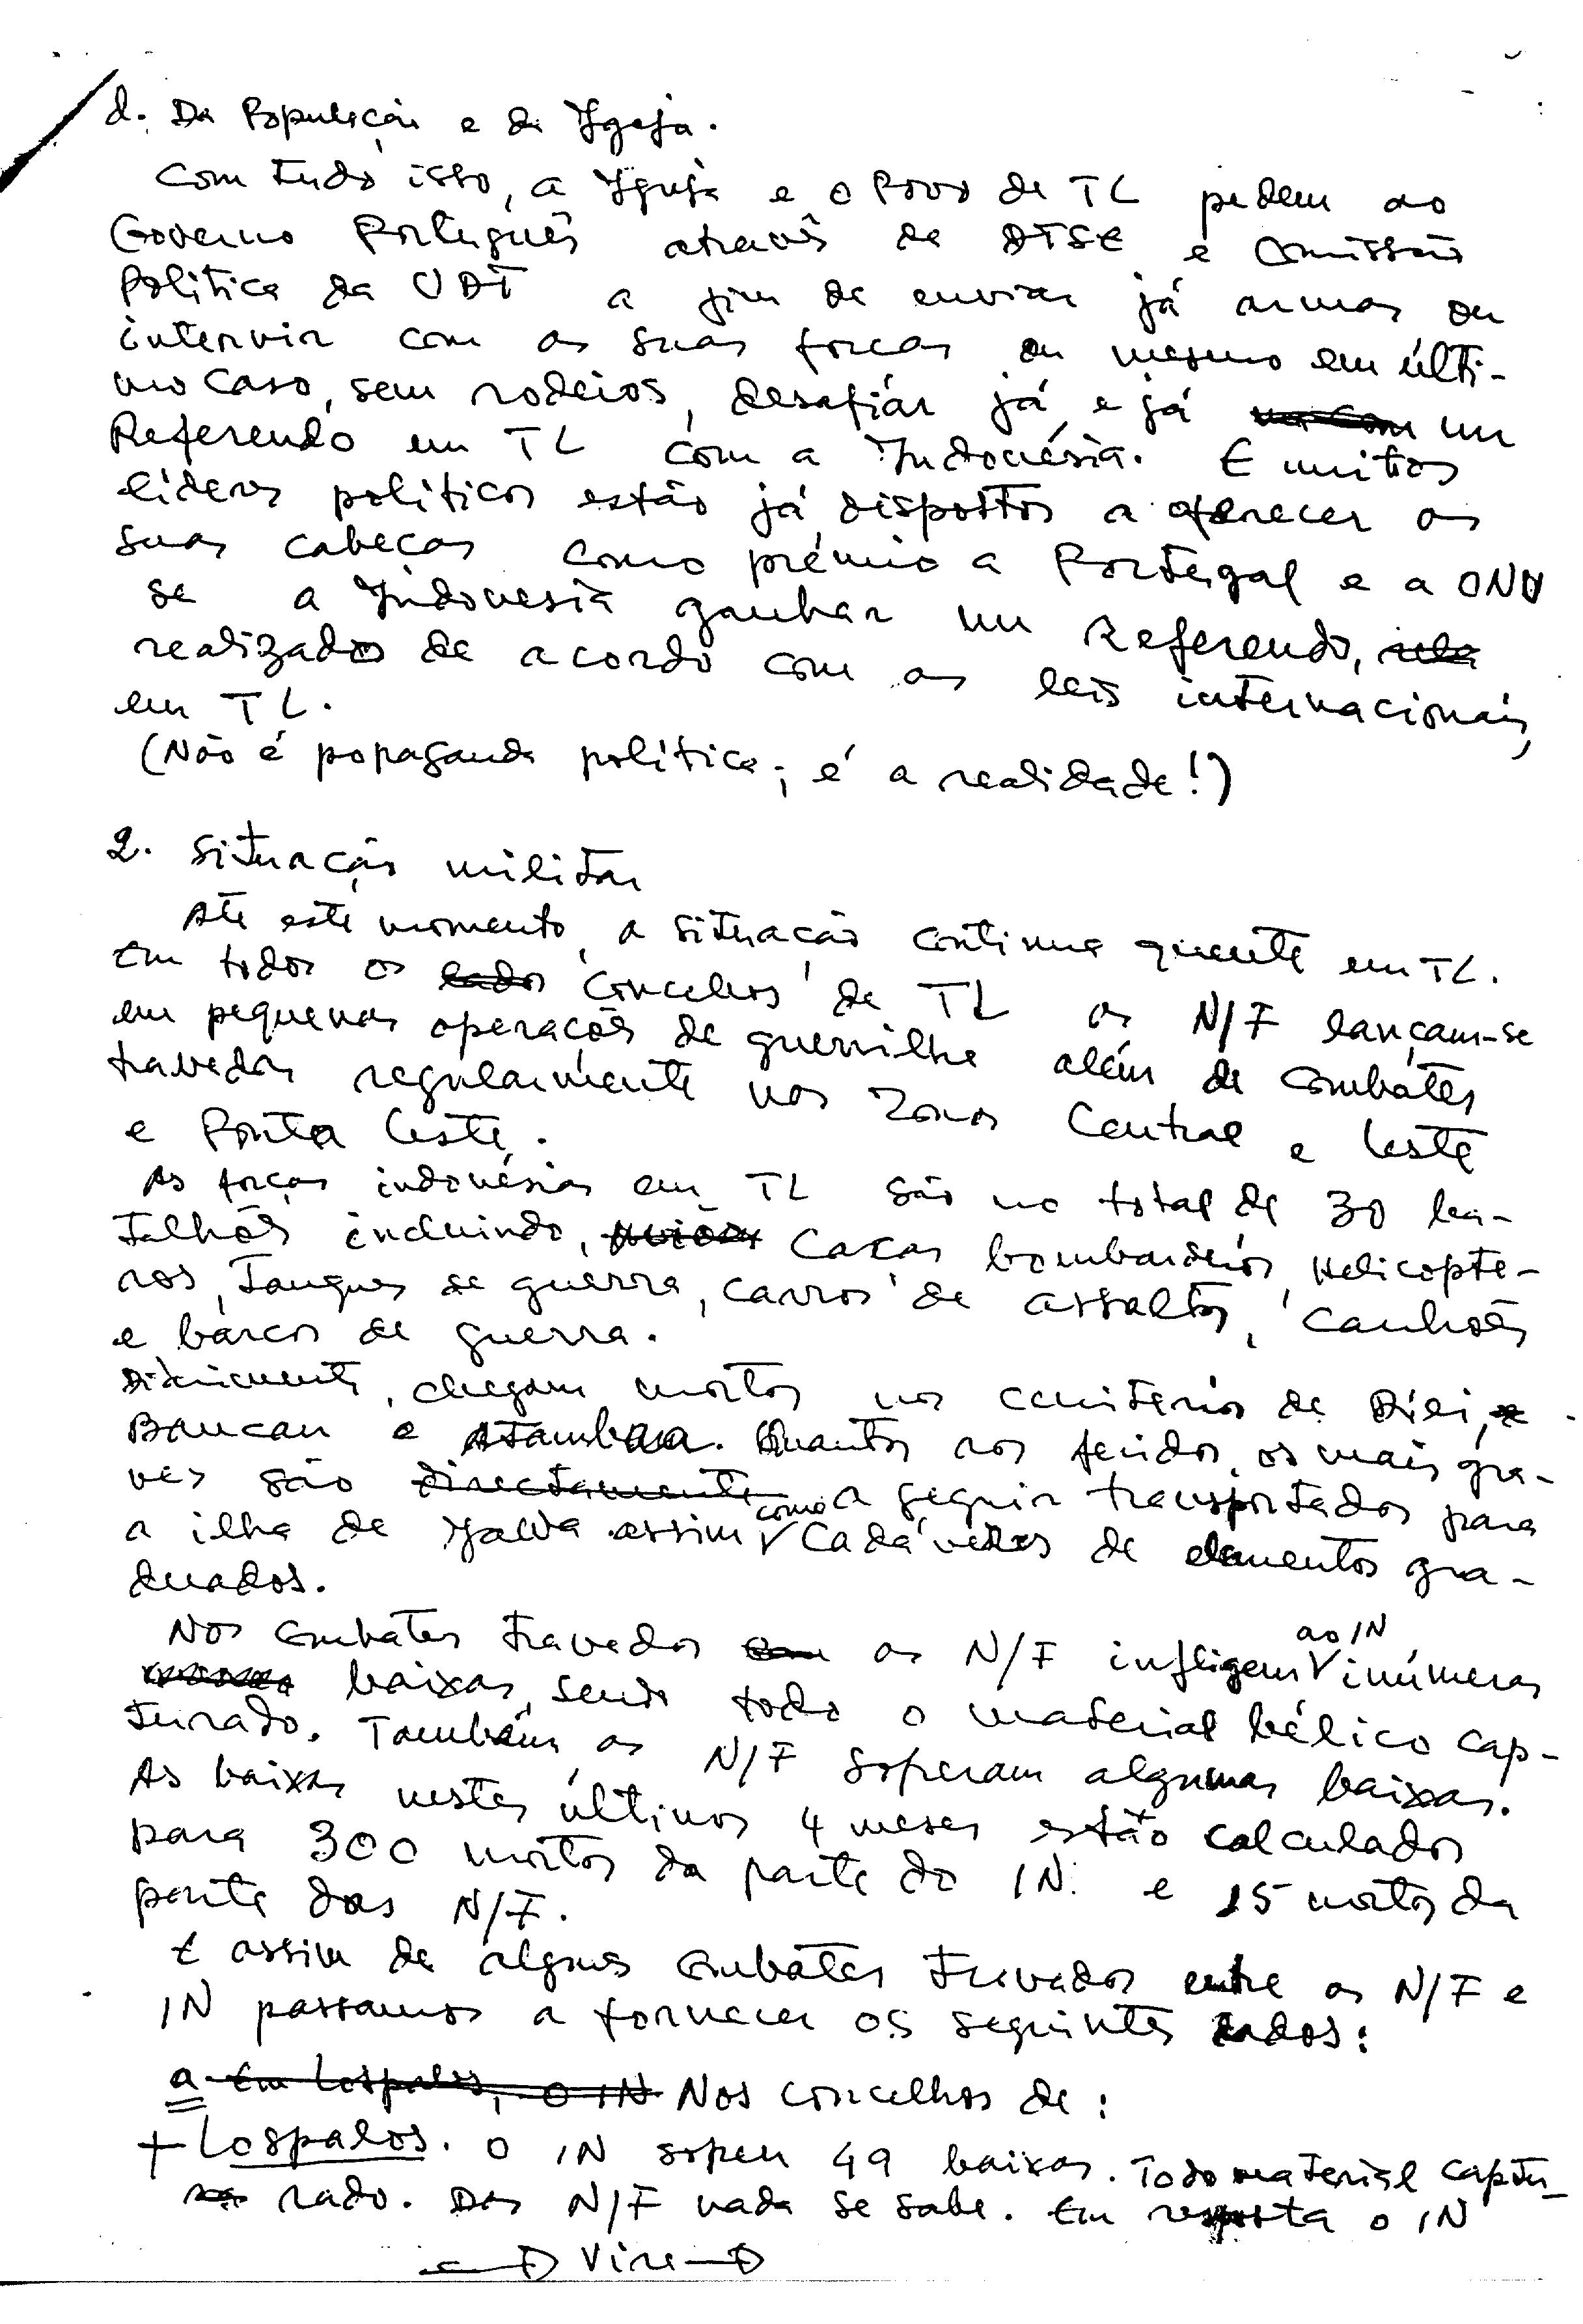 d. Da População e da Igreja.
Com tudo isso, a Igreja e o Povo de TL pedem ao
Governo Português através da DTSE e Comissão
Política da UDT a fim de enviar já armas ou
intervir com as suas forças ou mesmo em últi-
mo caso, sem rodeios, desafiar já e já um
Referendo em TL com a Indonésia. E muitos
líderes políticos estão já dispostos a oferecer as
suas cabeças como prémio a Portugal e a ONU
se a Indonesia ganhar um Referendo,
realizado de acordo com as leis internacionais,
em TL.
(Não é popaganda política; é a realidade!)
2. Situação militar
Até este momento, a situação continua quente em TL.
Em todos os lados concelhos de TL as N/F lançam-se
em pequenas operações de guerrilha além de combates
travados regularmente nas zonas Central e Leste
e Ponta Leste.
As forças indonésias em TL são no total de 30 ba-
talhões incluindo, aviões Caças bombardeiros, Helicopte-
ros, Tanques de guerra, carros de assaltos, canhões
e barcos de guerra.
Diàriamente, chegam mortos nos cemitérios de Dili, e
Baucau e Atambua. Quantos aos feridos, os mais gra-
ves são directamente a seguir transportados para
a ilha de Java assim como Cadáveres de elementos gra-
duados.
Nos combates travados com as N/F infligem ao IN inúmeras
baixas, sendo todo o material bélico cap-
turado. Também, as N/F soferam algumas baixas.
As baixas nestes últimos 4 meses estão calculados
para 300 mortos da parte do IN. e 15 mortos da
parte das N/F.
E assim de alguns combates travados entre as N/F e
IN passamos a fornecer os seguintes dados:
a Em Lospalos, o IN Nos concelhos de:
+ Lospalos. O IN sofreu 49 baixas. Todo material captu-
rado. Das N/F nada se sabe. Em resposta o IN
Vire